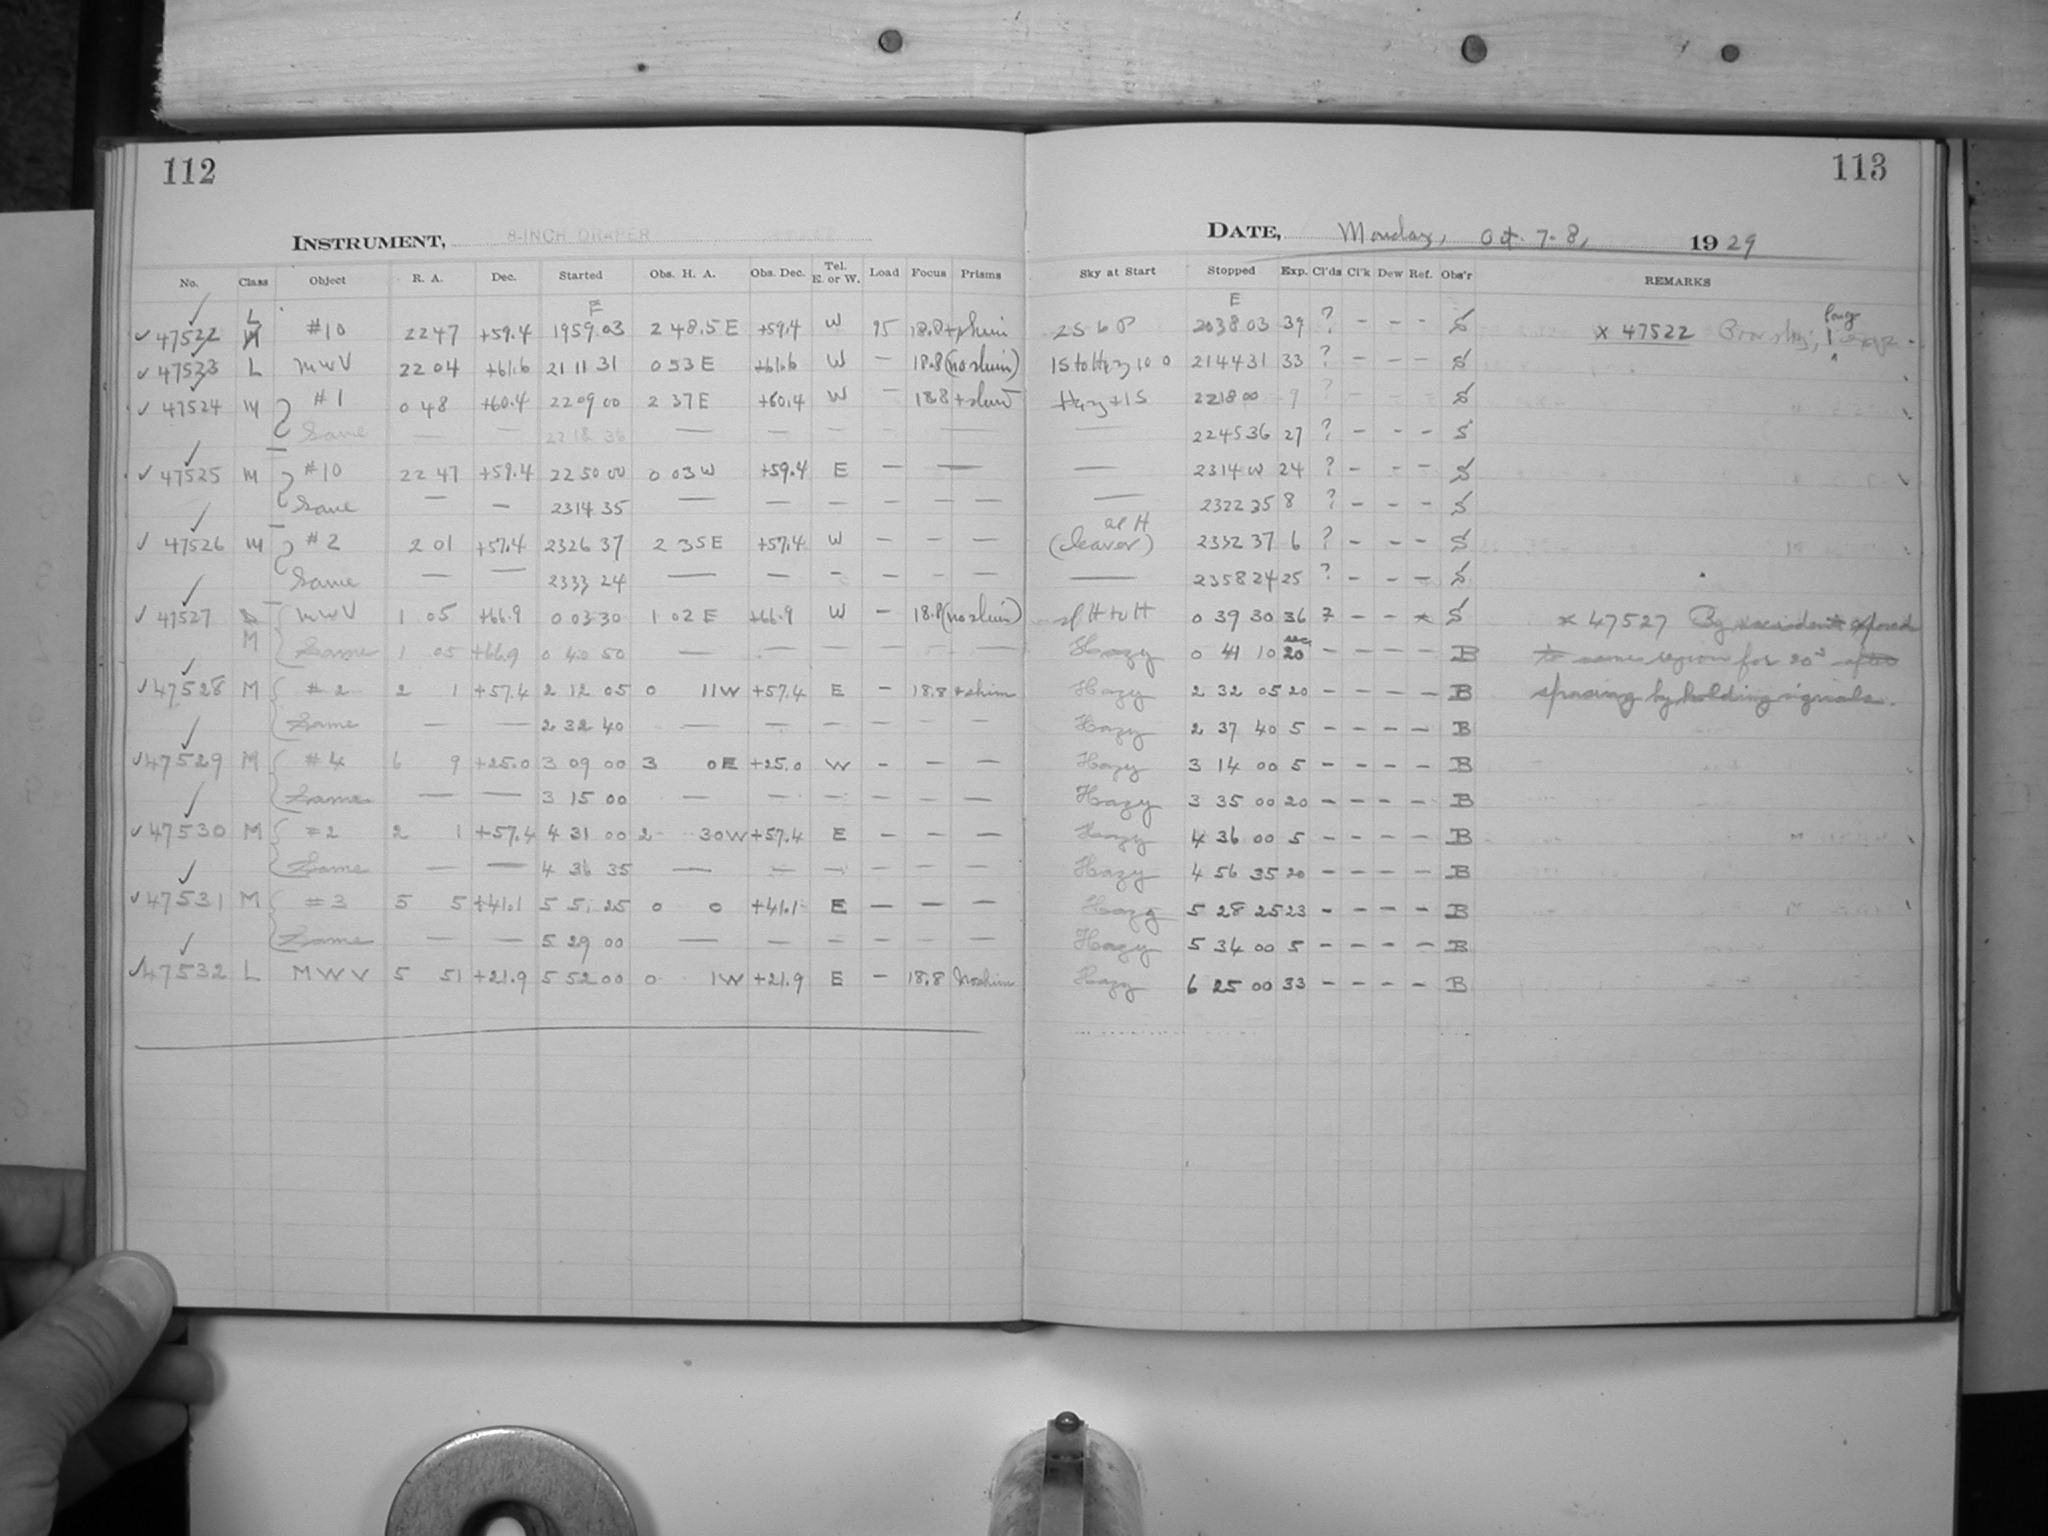 112
113
INSTRUMENT, 8-INCH DRAPER
DATE, Monday, Oct. 7-8, 1929
No. Class Object R. A. Dec. Started Obs. H. A. Obs. Dec. Tel. E. or W. Load Focus Prisms Sky at Start Stopped Exp. Cl'ds Cl'k Dew Ref. Obs'r REMARKS
E E
✓ 47522 L #10 22 47 +59.4 19 59.03 2 48.5 E +59.4 W 95 18.8 + shim 2S 6P 20 38 03 39 ? - - - S x 47522 long 1 exp.
✓ 47523 L MWV 22 04 +61.6 21 11 31 0 53 E +61.6 W - 18.8 (no shim) 1S to Hzy 10 0 21 44 31 33 ? - - - S
✓ 47524 M #1 0 48 +60.4 22 09 00 2 37 E +60.4 W - 18.8 + shim Hazy + 1S 22 18 00 9 ? - - - S
Same — — 22 18 36 — — — — — — 22 45 36 27 ? - - - S
✓ 47525 M #10 22 47 +59.4 22 50 00 0 03 W +59.4 E — — — 23 14 00 24 ? - - - S
Same — — 23 14 35 — — — — — — — 23 22 35 8 ? - - - S
✓ 47526 M #2 2 01 +57.4 23 26 37 2 35 E +57.4 W — — — sl H (cleaver) 23 32 37 6 ? - - - S
Same — — 23 33 24 — — — — — — — 23 58 24 25 ? - - - S
✓ 47527 MWV 1 05 +66.9 0 03 30 1 02 E +66.9 W - 18.8 (no shim) sl H to H 0 39 30 36 ? - - * S x 47527 By accident exposed
M Same 1 05 +66.9 0 40 50 — — — — — — Hazy 0 41 10 20 sec - - - - B to same region for 20s after
✓ 47528 M #2 2 1 +57.4 2 12 05 0 11 W +57.4 E - 18.8 + shim Hazy 2 32 05 20 - - - - B spacing by holding signals.
Same — — 2 32 40 — — — — — — Hazy 2 37 40 5 - - - - B
✓ 47529 M #4 6 9 +25.0 3 09 00 3 0 E +25.0 W - - - Hazy 3 14 00 5 - - - - B
Same — — 3 15 00 — — — — — — Hazy 3 35 00 20 - - - - B
✓ 47530 M #2 2 1 +57.4 4 31 00 2 30 W +57.4 E - - - Hazy 4 36 00 5 - - - - B
Same — — 4 36 35 — — — — — — Hazy 4 56 35 20 - - - - B
✓ 47531 M #3 5 5 +41.1 5 5 25 0 0 +41.1 E - - - Hazy 5 28 25 23 - - - - B
Same — — 5 29 00 — — — — — — Hazy 5 34 00 5 - - - - B
✓ 47532 L MWV 5 51 +21.9 5 52 00 0 1 W +21.9 E - 18.8 No shim Hazy 6 25 00 33 - - - - B